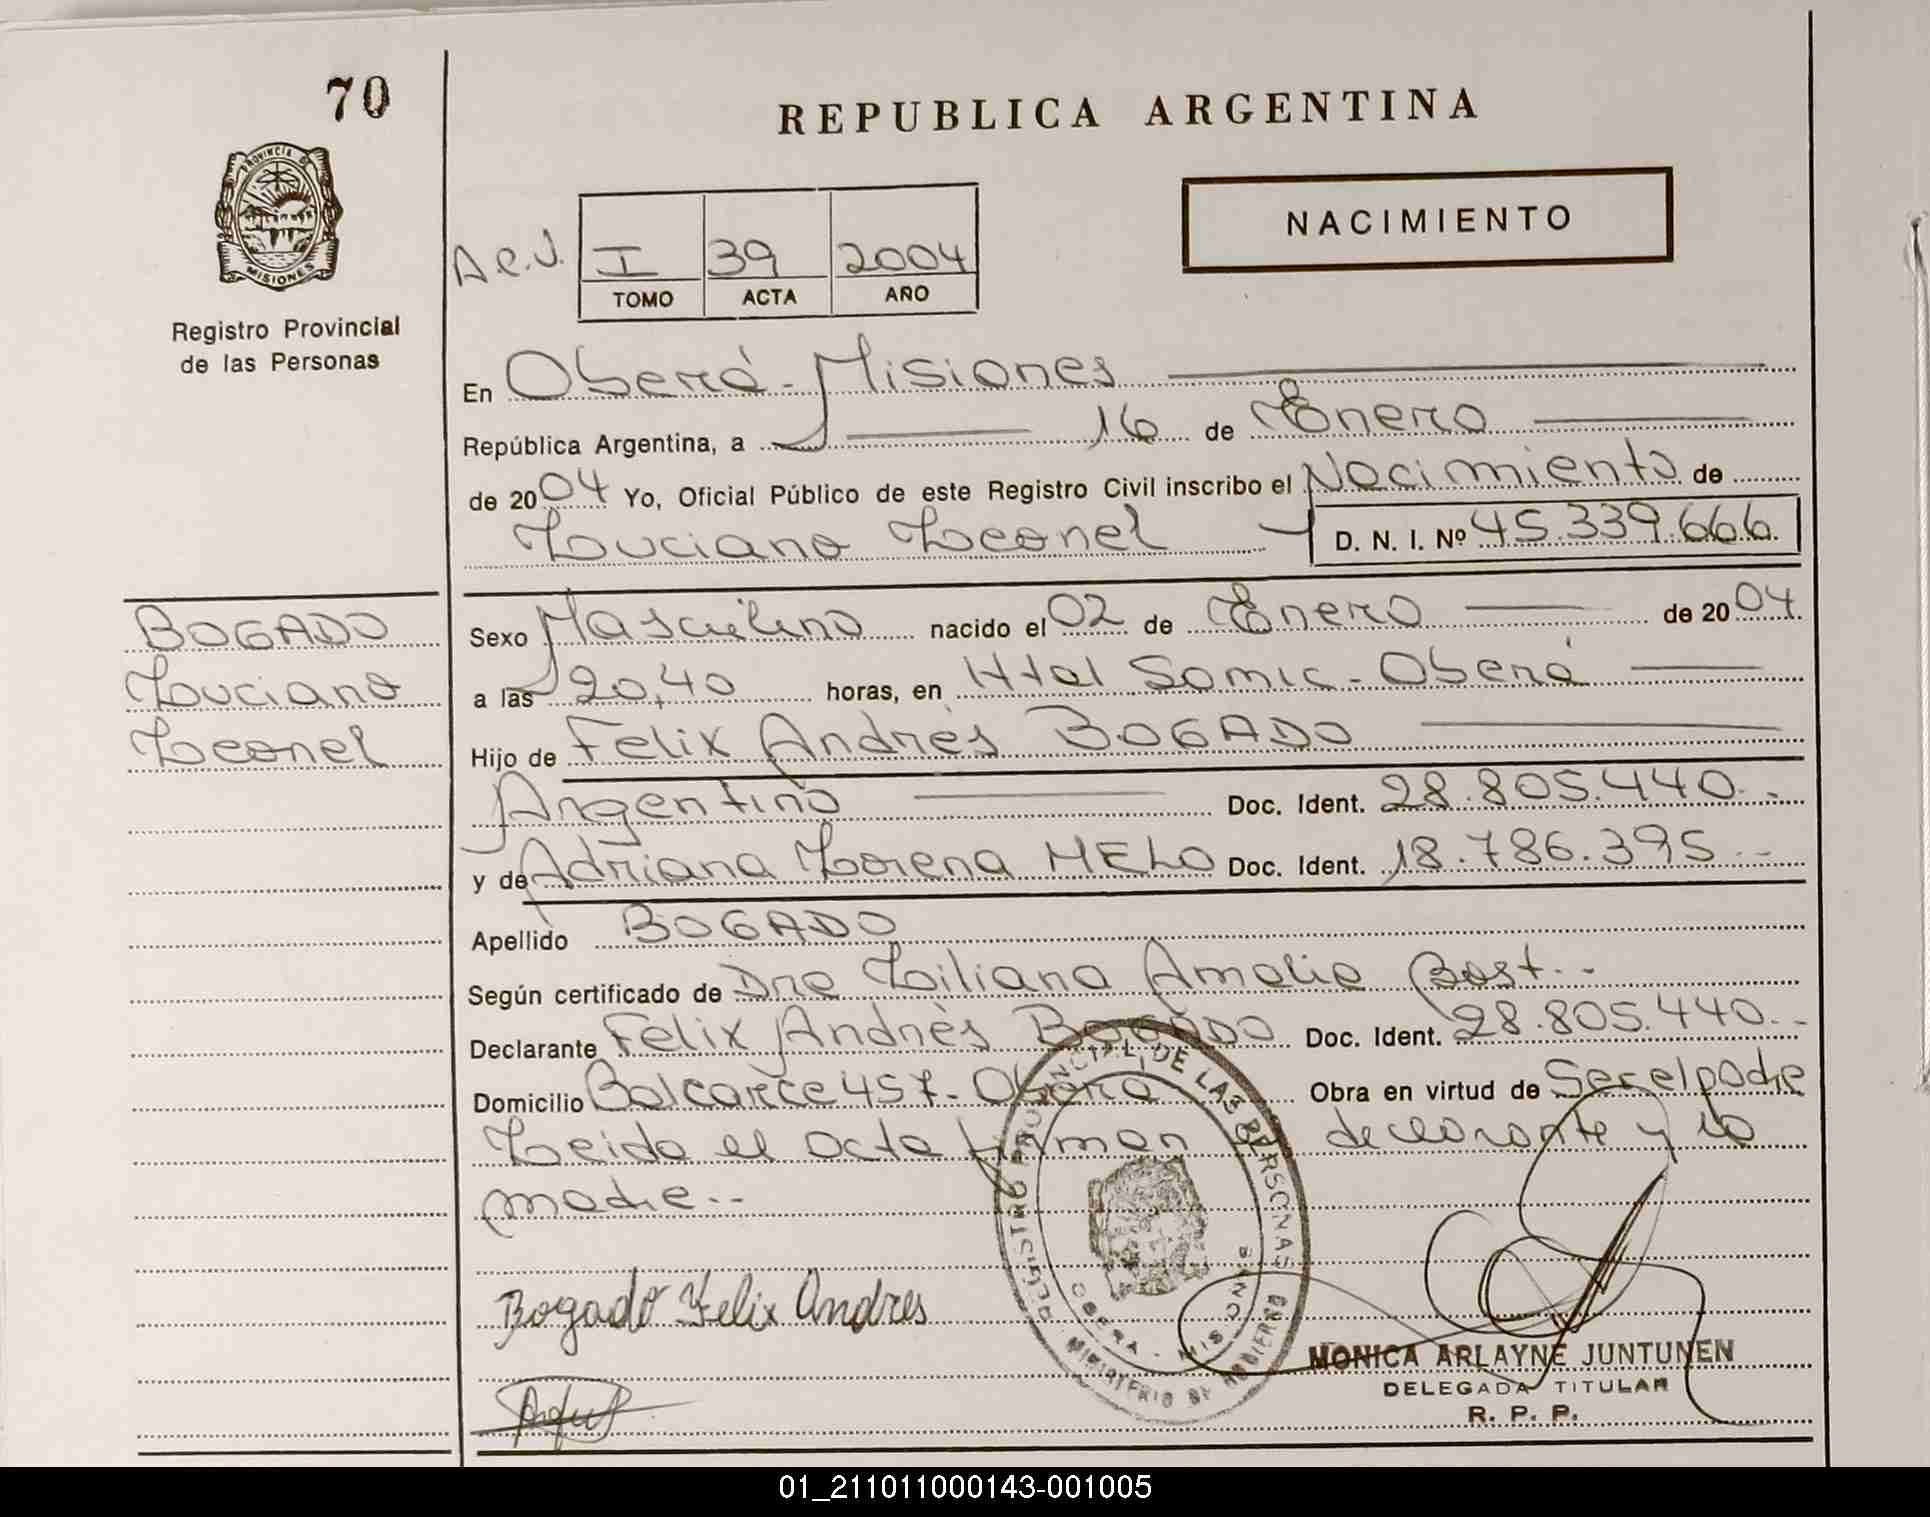 70
PROVINCIA DE
MISIONES
Registro Provincial
de las Personas
REPUBLICA ARGENTINA
NACIMIENTO
I 39 2004
TOMO ACTA AÑO
En Oberá - Misiones
República Argentina, a 16 de Enero
de 2004 Yo, Oficial Público de este Registro Civil inscribo el Nacimiento de
Luciano Leonel D. N. I. Nº 45.339.666.
BOGADO
Luciano
Leonel
Sexo Masculino nacido el 02 de Enero de 2004.
a las 20,40 horas, en Htal Samic - Oberá
Hijo de Felix Andrés BOGADO
Argentino Doc. Ident. 28.805.440.-
y de Adriana Lorena MELO Doc. Ident. 18.786.395 --
Apellido BOGADO
Según certificado de Dra Liliana Amalia Bast.-
Declarante Felix Andrès BOGADO Doc. Ident. 28.805.440.-
Domicilio Balcarce 457 - Oberá Obra en virtud de Ser el padre
Leida el acta firman el declarante y la
madre.--
Bogado Felix Andres
REGISTRO PROVINCIAL DE LAS PERSONAS
OBERA - MISIONES
MINISTERIO DE GOBIERNO
MONICA ARLAYNE JUNTUNEN
DELEGADA TITULAR
R. P. P.
01_211011000143-001005